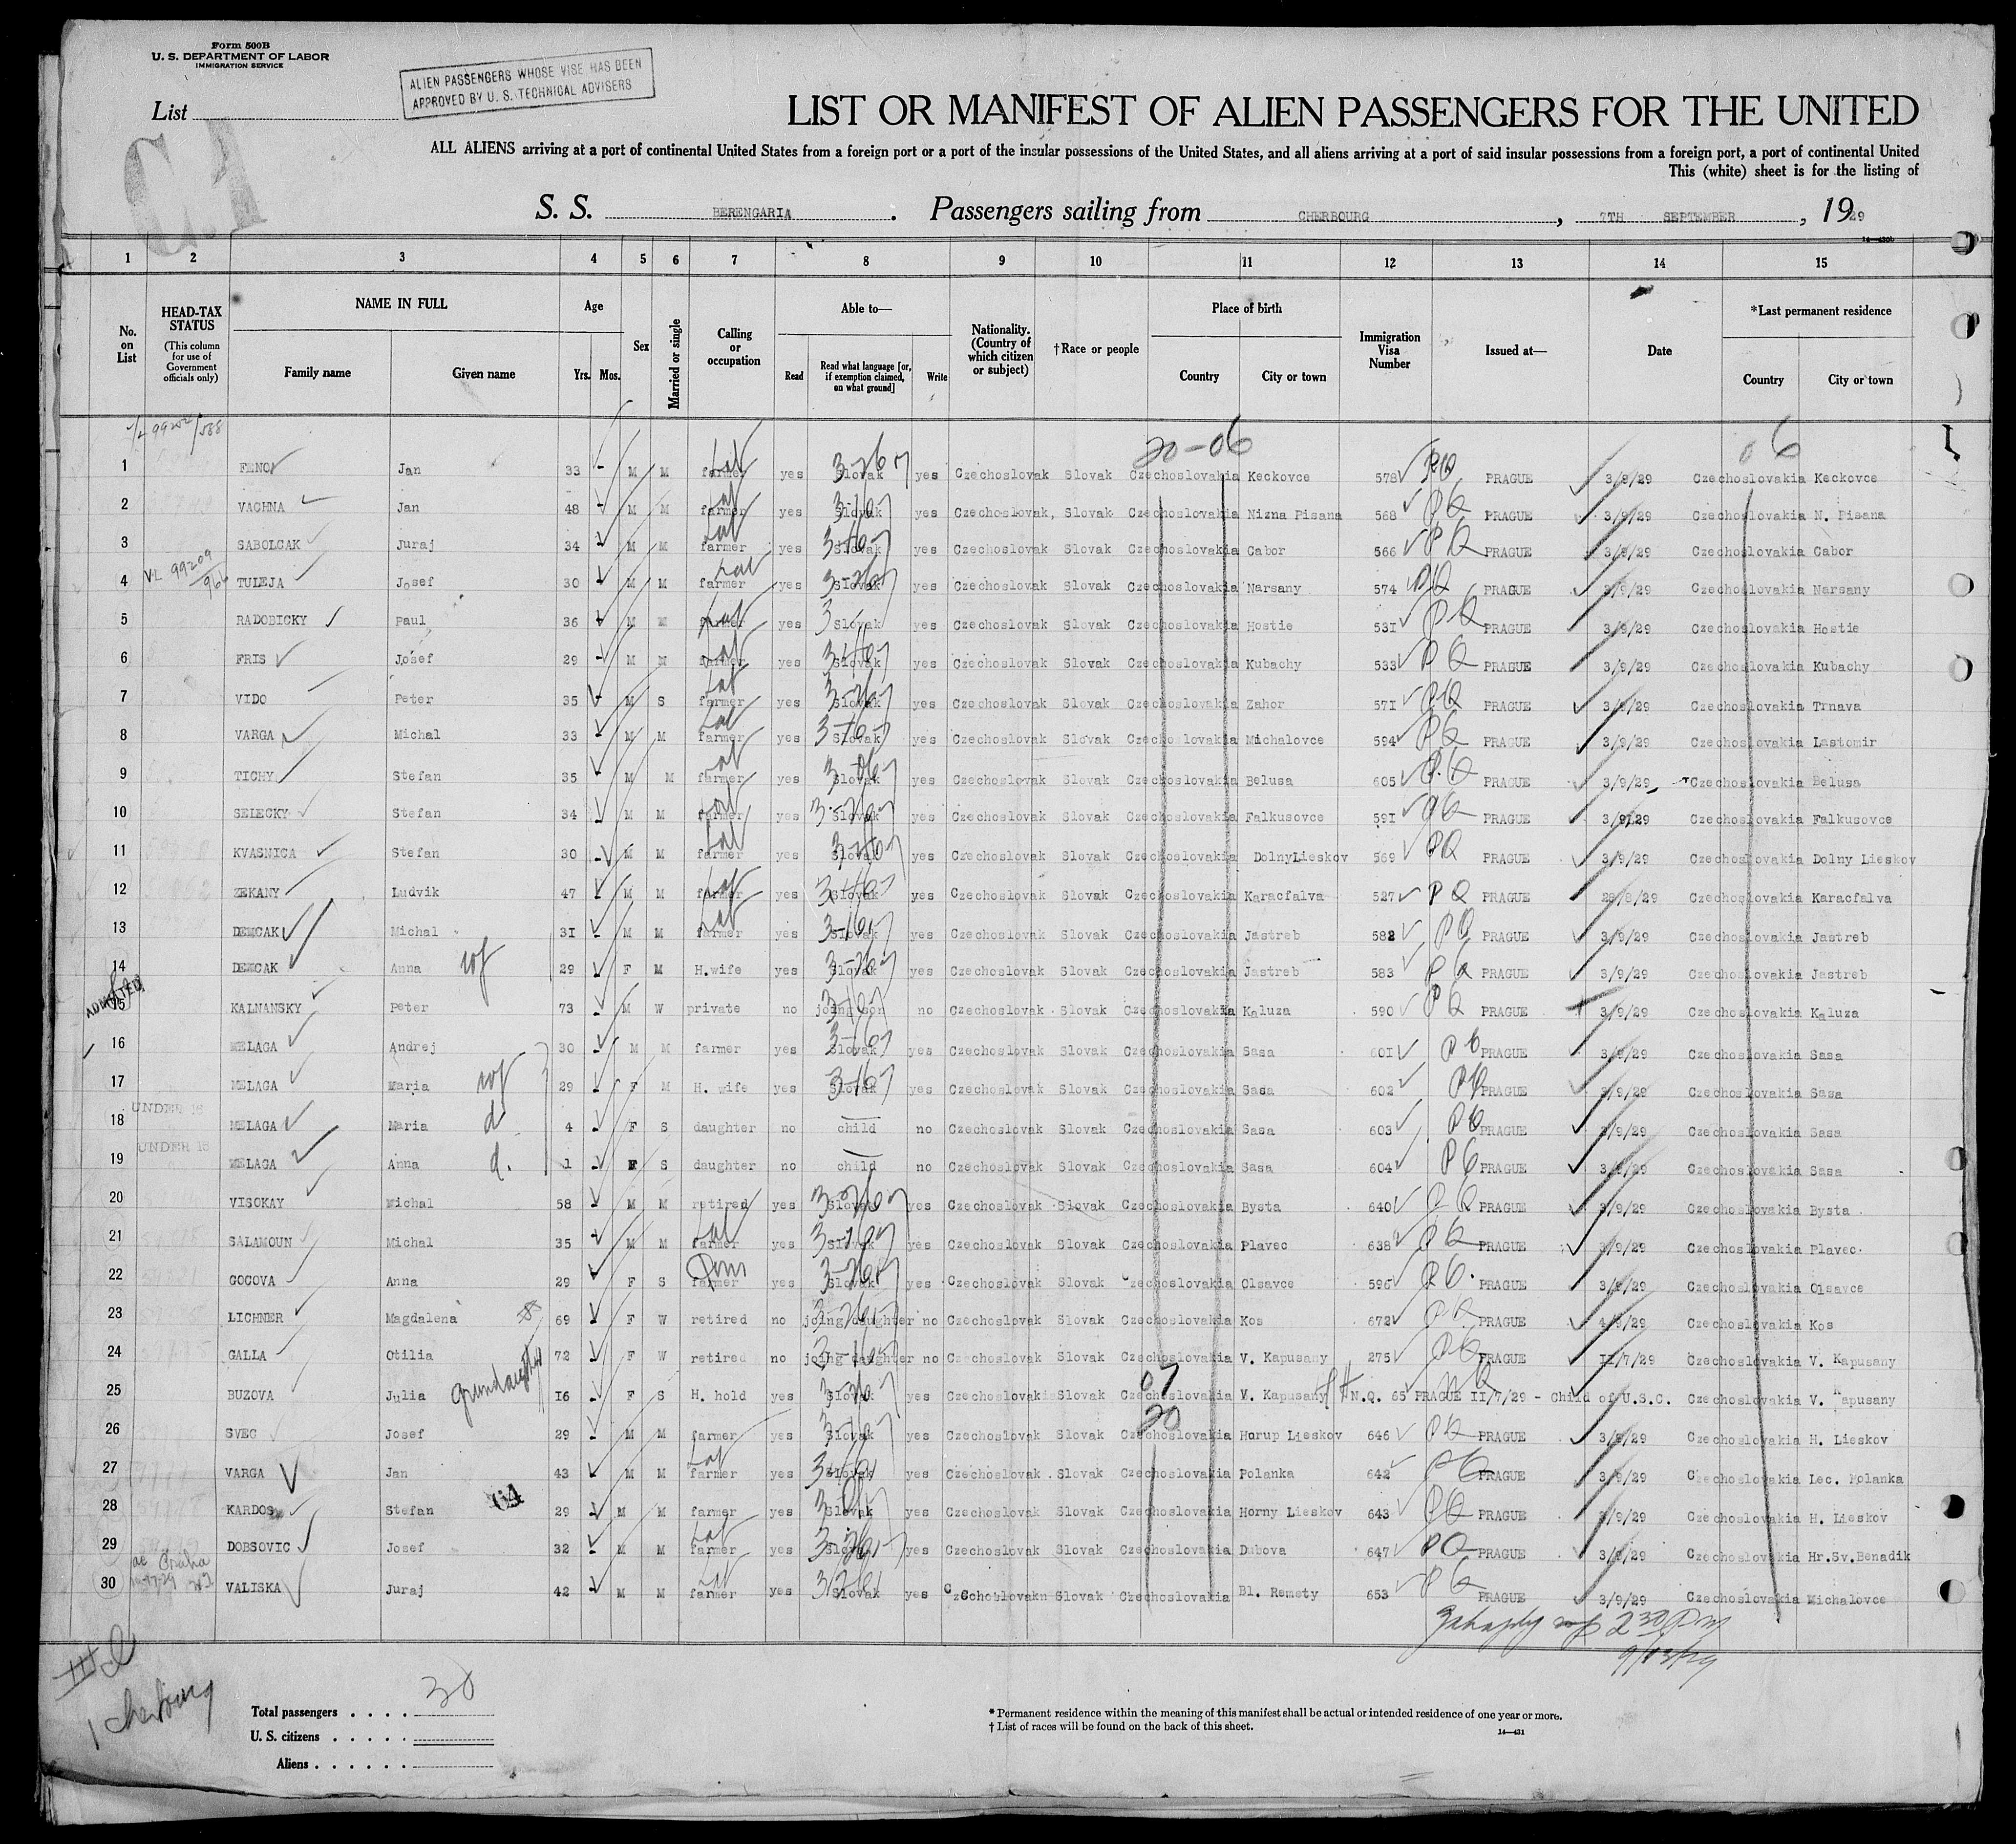 Form 500B
U. S. DEPARTMENT OF LABOR
IMMIGRATION SERVICE
ALIEN PASSENGERS WHOSE VISE HAS BEEN
APPROVED BY U. S. TECHNICAL ADVISERS
List
C1
LIST OR MANIFEST OF ALIEN PASSENGERS FOR THE UNITED
ALL ALIENS arriving at a port of continental United States from a foreign port or a port of the insular possessions of the United States, and all aliens arriving at a port of said insular possessions from a foreign port, a port of continental United
This (white) sheet is for the listing of
S. S. BERENGARIA. Passengers sailing from CHERBOURG, 7TH SEPTEMBER, 1929
14—430b
1 2 3 4 5 6 7 8 9 10 11 12 13 14 15
No. on List HEAD-TAX STATUS (This column for use of Government officials only) NAME IN FULL Family name Given name Age Yrs. Mos. Sex Married or single Calling or occupation Able to— Read Read what language [or, if exemption claimed, on what ground] Write Nationality. (Country of which citizen or subject) †Race or people Place of birth Country City or town Immigration Visa Number Issued at— Date *Last permanent residence Country City or town
20-06 06
1 FENO Jan 33 M M farmer yes Slovak yes Czechoslovak Slovak Czechoslovakia Keckovce 578 PRAGUE 3/9/29 Czechoslovakia Keckovce
2 VACHNA Jan 48 M M farmer yes Slovak yes Czechoslovak, Slovak Czechoslovakia Nizna Pisana 568 PRAGUE 3/9/29 Czechoslovakia N. Pisana
3 SABOLCAK Juraj 34 M M farmer yes Slovak yes Czechoslovak Slovak Czechoslovakia Cabor 566 PRAGUE 3/9/29 Czechoslovakia Cabor
4 TULEJA Josef 30 M M farmer yes Slovak yes Czechoslovak Slovak Czechoslovakia Narsany 574 PRAGUE 3/9/29 Czechoslovakia Narsany
5 RADOBICKY Paul 36 M M farmer yes Slovak yes Czechoslovak Slovak Czechoslovakia Hostie 531 PRAGUE 3/9/29 Czechoslovakia Hostie
6 FRIS Josef 29 M M farmer yes Slovak yes Czechoslovak Slovak Czechoslovakia Kubachy 533 PRAGUE 3/9/29 Czechoslovakia Kubachy
7 VIDO Peter 35 M S farmer yes Slovak yes Czechoslovak Slovak Czechoslovakia Zahor 571 PRAGUE 3/9/29 Czechoslovakia Trnava
8 VARGA Michal 33 M M farmer yes Slovak yes Czechoslovak Slovak Czechoslovakia Michalovce 594 PRAGUE 3/9/29 Czechoslovakia Lastomir
9 TICHY Stefan 35 M M farmer yes Slovak yes Czechoslovak Slovak Czechoslovakia Belusa 605 PRAGUE 3/9/29 Czechoslovakia Belusa
10 SELECKY Stefan 34 M M farmer yes Slovak yes Czechoslovak Slovak Czechoslovakia Falkusovce 591 PRAGUE 3/9/29 Czechoslovakia Falkusovce
11 KVASNICA Stefan 30 M M farmer yes Slovak yes Czechoslovak Slovak Czechoslovakia DolnyLieskov 569 PRAGUE 3/9/29 Czechoslovakia Dolny Lieskov
12 ZEKANY Ludvik 47 M M farmer yes Slovak yes Czechoslovak Slovak Czechoslovakia Karacfalva 527 PRAGUE 28/8/29 Czechoslovakia Karacfalva
13 DEMCAK Michal 31 M M farmer yes Slovak yes Czechoslovak Slovak Czechoslovakia Jastreb 582 PRAGUE 3/9/29 Czechoslovakia Jastreb
14 DEMCAK Anna wf 29 F M H.wife yes Slovak yes Czechoslovak Slovak Czechoslovakia Jastreb 583 PRAGUE 3/9/29 Czechoslovakia Jastreb
ADMITTED
15 KALNANSKY Peter 73 M W private no joing son no Czechoslovak Slovak Czechoslovakia Kaluza 590 PRAGUE 3/9/29 Czechoslovakia Kaluza
16 MELAGA Andrej 30 M M farmer yes Slovak yes Czechoslovak Slovak Czechoslovakia Sasa 601 PRAGUE 3/9/29 Czechoslovakia Sasa
17 MELAGA Maria wf 29 F M H. wife yes Slovak yes Czechoslovak Slovak Czechoslovakia Sasa 602 PRAGUE 3/9/29 Czechoslovakia Sasa
18 UNDER 16 MELAGA Maria d 4 F S daughter no child no Czechoslovak Slovak Czechoslovakia Sasa 603 PRAGUE 3/9/29 Czechoslovakia Sasa
19 UNDER 16 MELAGA Anna d. 1 F S daughter no child no Czechoslovak Slovak Czechoslovakia Sasa 604 PRAGUE 3/9/29 Czechoslovakia Sasa
20 VISOKAY Michal 58 M M retired yes Slovak yes Czechoslovak Slovak Czechoslovakia Bysta 640 PRAGUE 3/9/29 Czechoslovakia Bysta
21 SALAMOUN Michal 35 M M farmer yes Slovak yes Czechoslovak Slovak Czechoslovakia Plavec 638 PRAGUE 3/9/29 Czechoslovakia Plavec
22 GOCOVA Anna 29 F S farmer yes Slovak yes Czechoslovak Slovak Czechoslovakia Olsavce 596 PRAGUE 3/9/29 Czechoslovakia Olsavce
23 LICHNER Magdalena 69 F W retired no joing daughter no Czechoslovak Slovak Czechoslovakia Kos 672 PRAGUE 4/9/29 Czechoslovakia Kos
24 GALLA Otilia 72 F W retired no joing daughter no Czechoslovak Slovak Czechoslovakia V. Kapusany 275 PRAGUE 11/7/29 Czechoslovakia V. Kapusany
25 BUZOVA Julia grandaughter 16 F S H. hold yes Slovak yes Czechoslovakia Slovak Czechoslovakia V. Kapusany N.Q. 65 PRAGUE 11/7/29 - Child of U.S.C. Czechoslovakia V. Kapusany
26 SVEC Josef 29 M M farmer yes Slovak yes Czechoslovak Slovak Czechoslovakia Horup Lieskov 646 PRAGUE 3/9/29 Czechoslovakia H. Lieskov
27 VARGA Jan 43 M M farmer yes Slovak yes Czechoslovak Slovak Czechoslovakia Polanka 642 PRAGUE 3/9/29 Czechoslovakia Lec. Polanka
28 KARDOS Stefan 29 M M farmer yes Slovak yes Czechoslovak Slovak Czechoslovakia Horny Lieskov 643 PRAGUE 3/9/29 Czechoslovakia H. Lieskov
29 DOBSOVIC Josef 32 M M farmer yes Slovak yes Czechoslovak Slovak Czechoslovakia Dubova 647 PRAGUE 3/9/29 Czechoslovakia Hr.Sv.Benadik
30 VALISKA Juraj 42 M M farmer yes Slovak yes Slovak Czechoslovakia Bl. Remety 653 PRAGUE 3/9/29 Czechoslovakia Michalovce
2 30 Pm
9/13/29
Cherbourg
Total passengers . . . . 30
U. S. citizens . . . . .
Aliens . . . . . .
* Permanent residence within the meaning of this manifest shall be actual or intended residence of one year or more.
† List of races will be found on the back of this sheet.
14—431